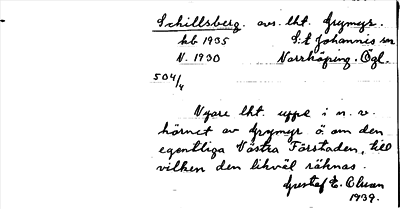 Schillsberg. avs. lht. Grymyr.
kb 1935 S:t Johannis sn
N. 1930 Norrköping. Ögl.
504/4
Nyare lht. uppe i n. v.
hörnet av Grymyr ö. om den
egentliga Västra Förstaden, till
vilken den likväl räknas.
Gustaf E. Clvan
1939.